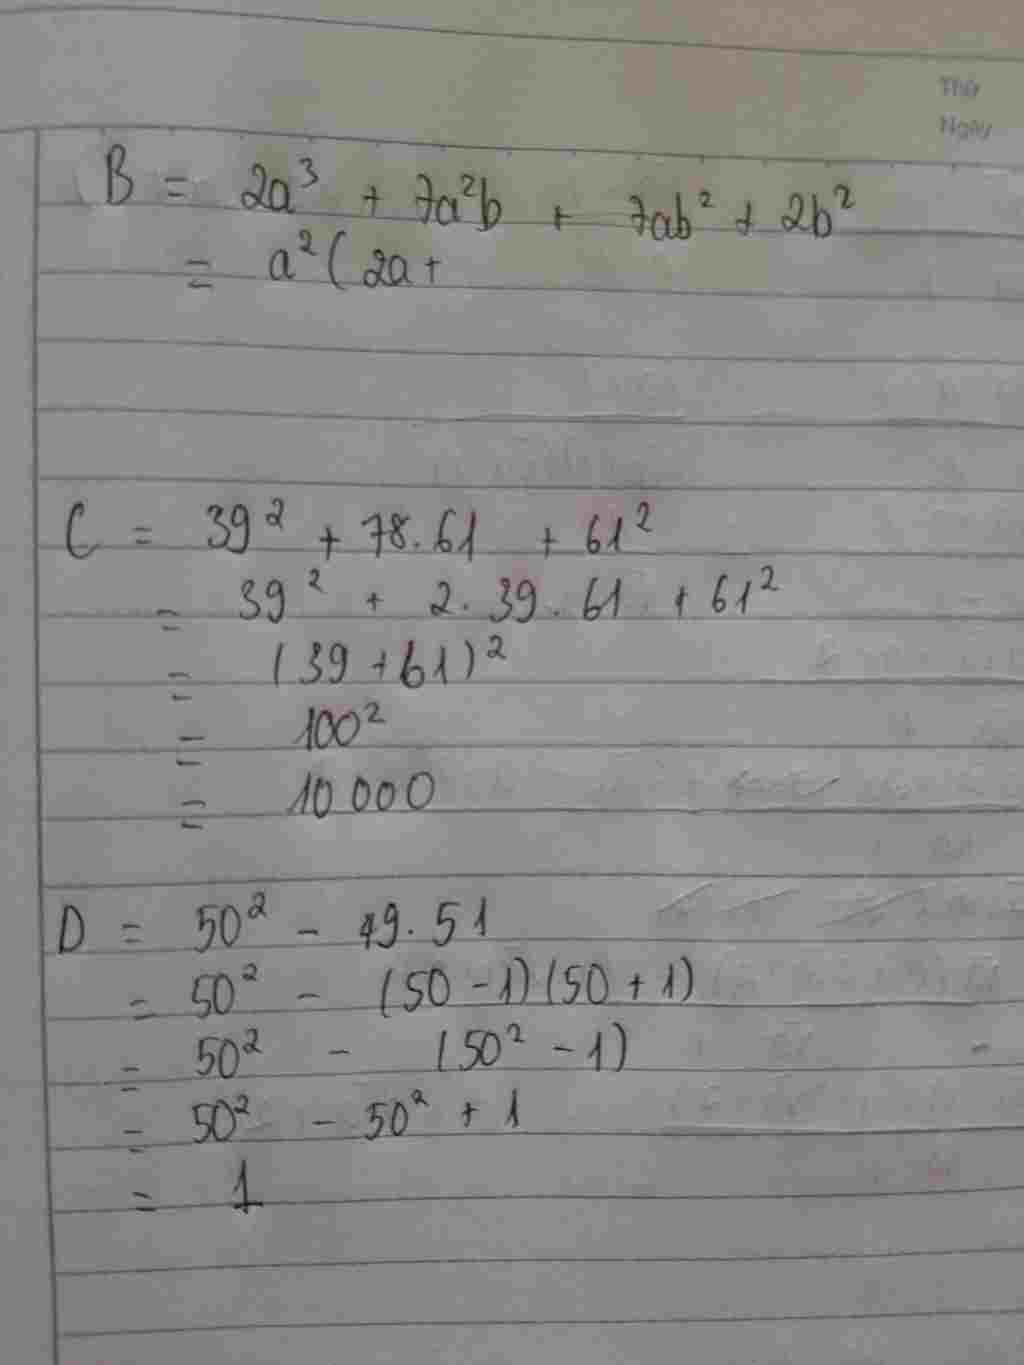 Thứ
Ngày
B = 2a³ + 7a²b + 7ab² + 2b²
= a² ( 2a +
C = 39² + 78.61 + 61²
= 39² + 2. 39. 61 + 61²
= (39 + 61)²
= 100²
= 10 000
D = 50² - 49. 51
= 50² - (50 - 1) (50 + 1)
= 50² - (50² - 1)
= 50² - 50² + 1
= 1